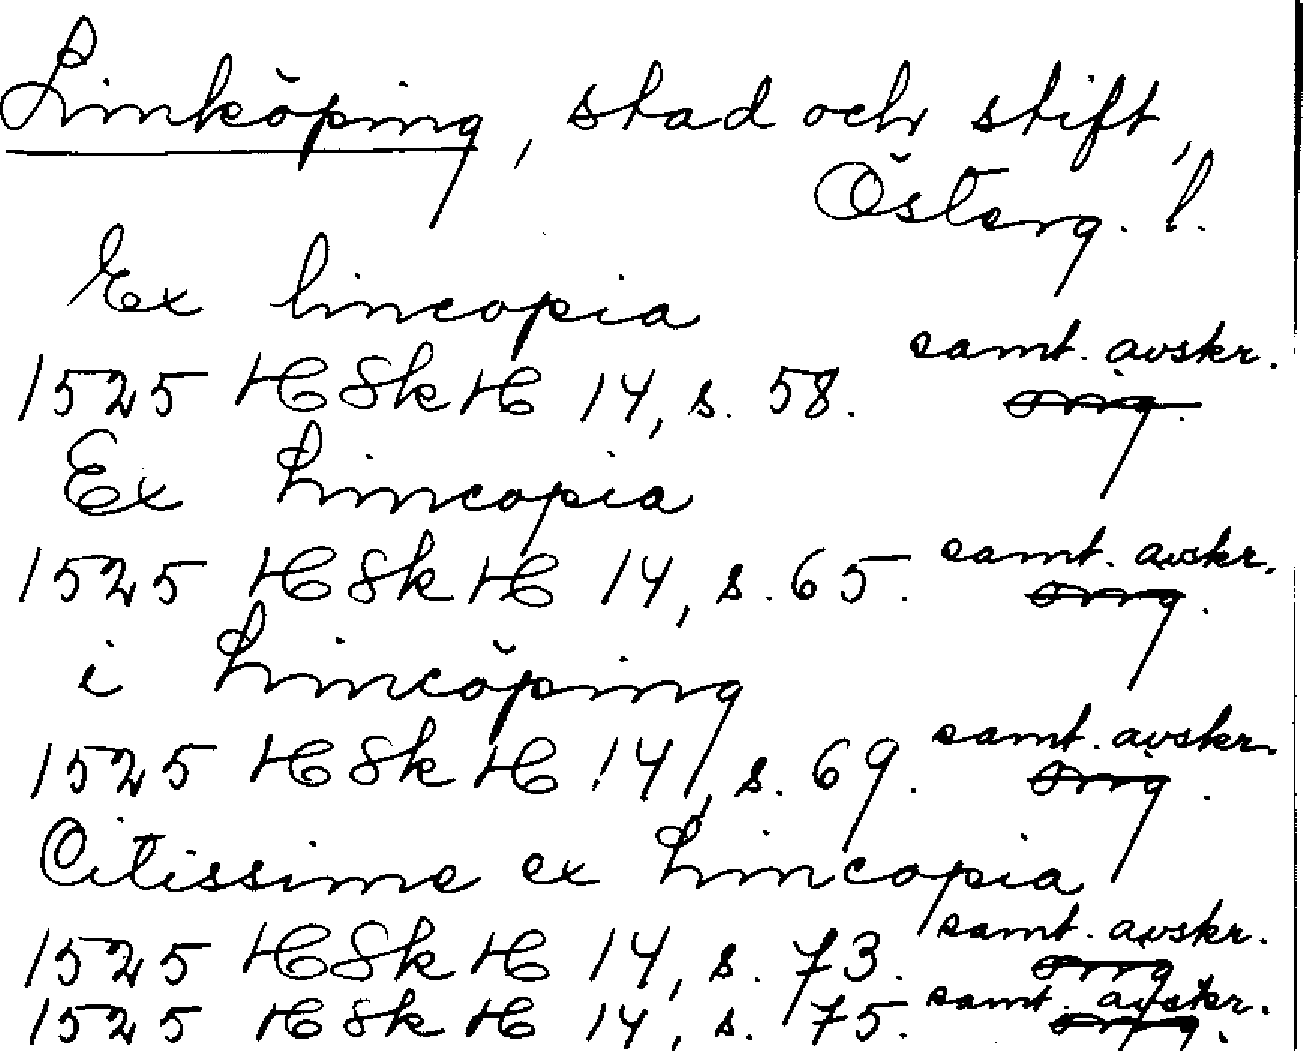 Linköping, stad och stift,
Österg. l.
Ex lincopia
samt. avskr.
1525 HSkH 14, s. 58. org.
Ex Lincopia
1525 HSkH 14, s. 65. samt. avskr.
org.
i Lincöping
1525 HSkH 14, s. 69. samt. avskr.
org.
Citissime ex Lincopia
1525 HSkH 14, s. 73. samt. avskr.
org.
1525 HSkH 14, s. 75. samt. avskr.
org.